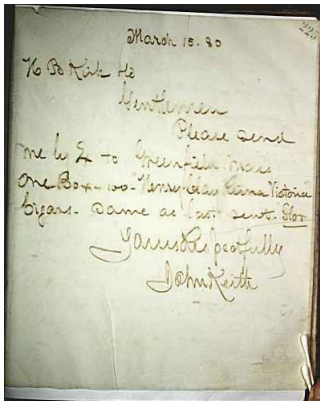 225
March 15. 80
H B Kirk & Co
Gentlemen
Please send
me by Ex to Greenfield Mass
One Box - 100 - Henry Clay Victoria
Cigars - Same as last sent.
Yours Respectfully
John Keith